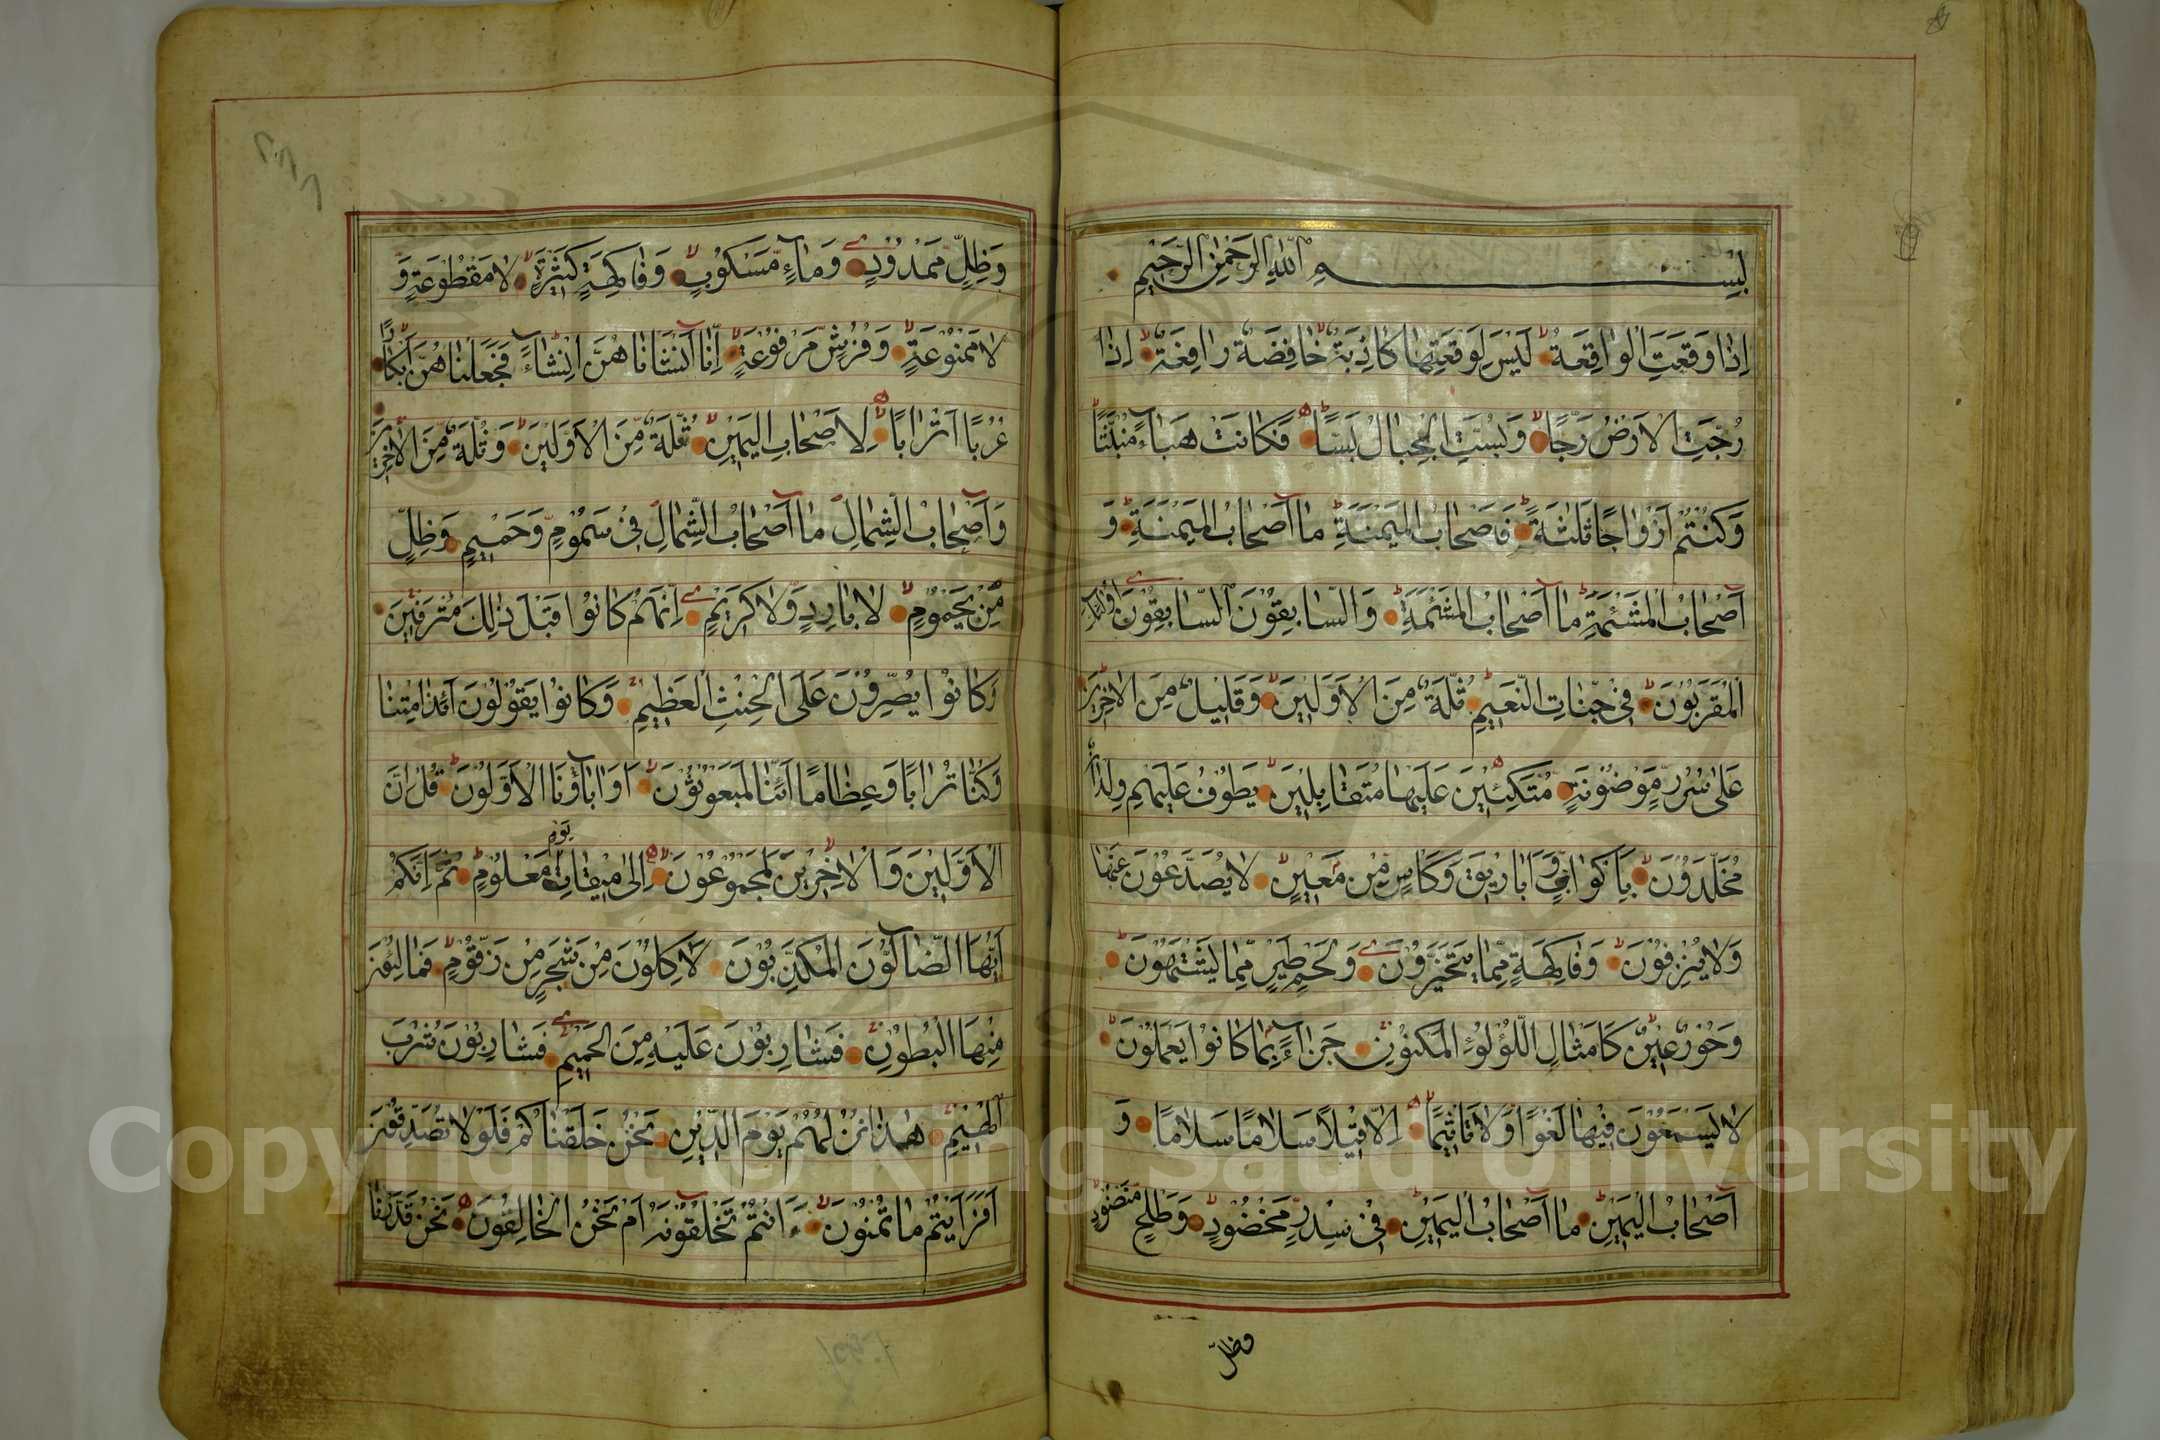 بِسْمِ اللّٰهِ الرَّحْمٰنِ الرَّحِيْمِ
اِذَا وَقَعَتِ الْوَاقِعَةُ لَيْسَ لِوَقْعَتِهَا كَاذِبَةٌ خَافِضَةٌ رَافِعَةٌ اِذَا
رُجَّتِ الْاَرْضُ رَجًّا وَبُسَّتِ الْجِبَالُ بَسًّا فَكَانَتْ هَبَاءً مُنْبَثًّا
وَكُنْتُمْ اَزْوَاجًا ثَلٰثَةً فَاَصْحَابُ الْمَيْمَنَةِ مَا اَصْحَابُ الْمَيْمَنَةِ وَ
اَصْحَابُ الْمَشْئَمَةِ مَا اَصْحَابُ الْمَشْئَمَةِ وَالسَّابِقُوْنَ السَّابِقُوْنَ اُولٰئِكَ
الْمُقَرَّبُوْنَ فِيْ جَنَّاتِ النَّعِيْمِ ثُلَّةٌ مِنَ الْاَوَّلِيْنَ وَقَلِيْلٌ مِنَ الْاٰخِرِيْنَ
عَلٰى سُرُرٍ مَّوْضُوْنَةٍ مُتَّكِئِيْنَ عَلَيْهَا مُتَقَابِلِيْنَ يَطُوْفُ عَلَيْهِمْ وِلْدَانٌ
مُخَلَّدُوْنَ بِاَكْوَابٍ وَّاَبَارِيْقَ وَكَاْسٍ مِّنْ مَعِيْنٍ لَا يُصَدَّعُوْنَ عَنْهَا
وَلَا يُنْزِفُوْنَ وَفَاكِهَةٍ مِّمَّا يَتَخَيَّرُوْنَ وَلَحْمِ طَيْرٍ مِّمَّا يَشْتَهُوْنَ
وَحُوْرٌ عِيْنٌ كَاَمْثَالِ اللُّؤْلُؤِ الْمَكْنُوْنِ جَزَاءً بِمَا كَانُوْا يَعْمَلُوْنَ
لَا يَسْمَعُوْنَ فِيْهَا لَغْوًا وَلَا تَاْثِيْمًا اِلَّا قِيْلًا سَلَامًا سَلَامًا وَ
اَصْحَابُ الْيَمِيْنِ مَا اَصْحَابُ الْيَمِيْنِ فِيْ سِدْرٍ مَّخْضُوْدٍ وَطَلْحٍ مَّنْضُوْدٍ
وظل
وَظِلٍّ مَمْدُوْدٍ وَمَاءٍ مَّسْكُوْبٍ وَفَاكِهَةٍ كَثِيْرَةٍ لَا مَقْطُوْعَةٍ وَ
لَا مَمْنُوْعَةٍ وَفُرُشٍ مَّرْفُوْعَةٍ اِنَّا اَنْشَانَا هُنَّ اِنْشَاءً فَجَعَلْنَا هُنَّ اَبْكَارًا
عُرُبًا اَتْرَابًا لِاَصْحَابِ الْيَمِيْنِ ثُلَّةٌ مِّنَ الْاَوَّلِيْنَ وَثُلَّةٌ مِّنَ الْاٰخِرِيْنَ
وَاَصْحَابُ الشِّمَالِ مَا اَصْحَابُ الشِّمَالِ فِيْ سَمُوْمٍ وَحَمِيْمٍ وَظِلٍّ
مِّنْ يَحْمُوْمٍ لَا بَارِدٍ وَّلَا كَرِيْمٍ اِنَّهُمْ كَانُوْا قَبْلَ ذٰلِكَ مُتْرَفِيْنَ
وَكَانُوْا يُصِرُّوْنَ عَلَى الْحِنْثِ الْعَظِيْمِ وَكَانُوْا يَقُوْلُوْنَ اَئِذَا مِتْنَا
وَكُنَّا تُرَابًا وَعِظَامًا اَئِنَّا لَمَبْعُوْثُوْنَ اَوَ اٰبَاؤُنَا الْاَوَّلُوْنَ قُلْ اِنَّ
الْاَوَّلِيْنَ وَالْاٰخِرِيْنَ لَمَجْمُوْعُوْنَ اِلٰى مِيْقَاتِ يَوْمٍ مَعْلُوْمٍ ثُمَّ اِنَّكُمْ
اَيُّهَا الضَّالُّوْنَ الْمُكَذِّبُوْنَ لَاٰكِلُوْنَ مِنْ شَجَرٍ مِنْ زَقُّوْمٍ فَمَالِئُوْنَ
مِنْهَا الْبُطُوْنَ فَشَارِبُوْنَ عَلَيْهِ مِنَ الْحَمِيْمِ فَشَارِبُوْنَ شُرْبَ
الْهِيْمِ هٰذَا نُزُلُهُمْ يَوْمَ الدِّيْنِ نَحْنُ خَلَقْنَاكُمْ فَلَوْلَا تُصَدِّقُوْنَ
اَفَرَاَيْتُمْ مَا تُمْنُوْنَ ءَاَنْتُمْ تَخْلُقُوْنَهُ اَمْ نَحْنُ الْخَالِقُوْنَ نَحْنُ قَدَّرْنَا
Copyright © King Saud University